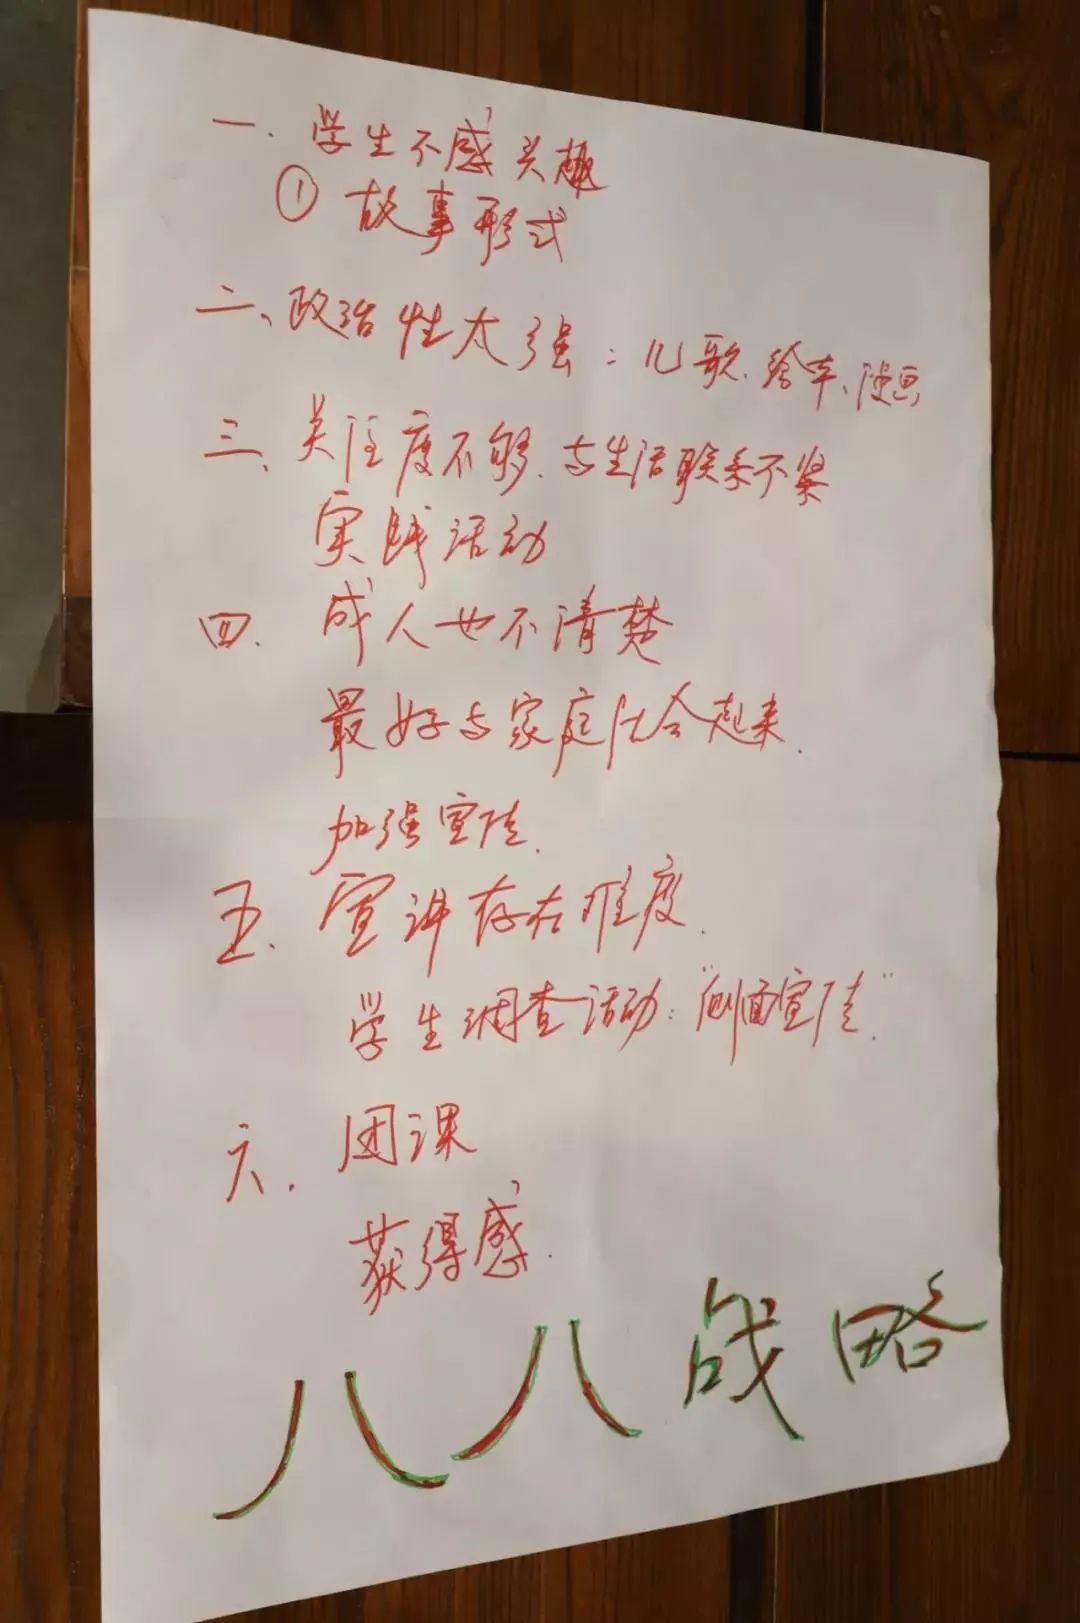 一、学生不感兴趣
① 故事形式
二、政治性太强：儿歌、绘本、漫画
三、关注度不够、与生活联系不紧
实践活动
四、成人也不清楚
最好与家庭结合起来.
加强宣传.
五、宣讲存在难度.
学生调查活动："侧面宣传"
六、团课
获得感.
八八战略